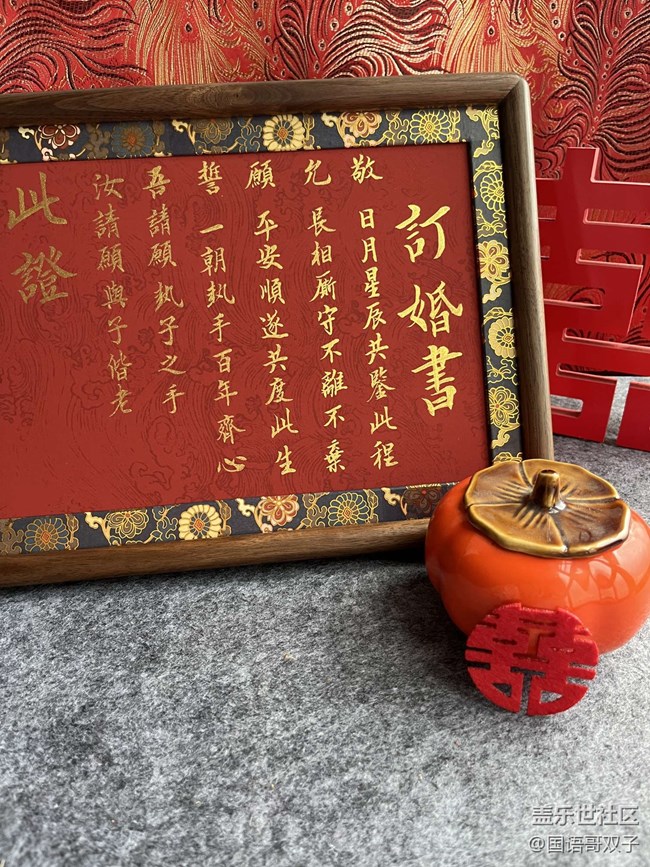 訂婚書
敬
日月星辰共鑒此程
允
長相厮守不離不棄
願
平安順遂共度此生
誓
一朝執手百年齊心
吾請願執子之手
汝請願與子偕老
此證
囍
囍
盖乐世社区
@国语哥双子